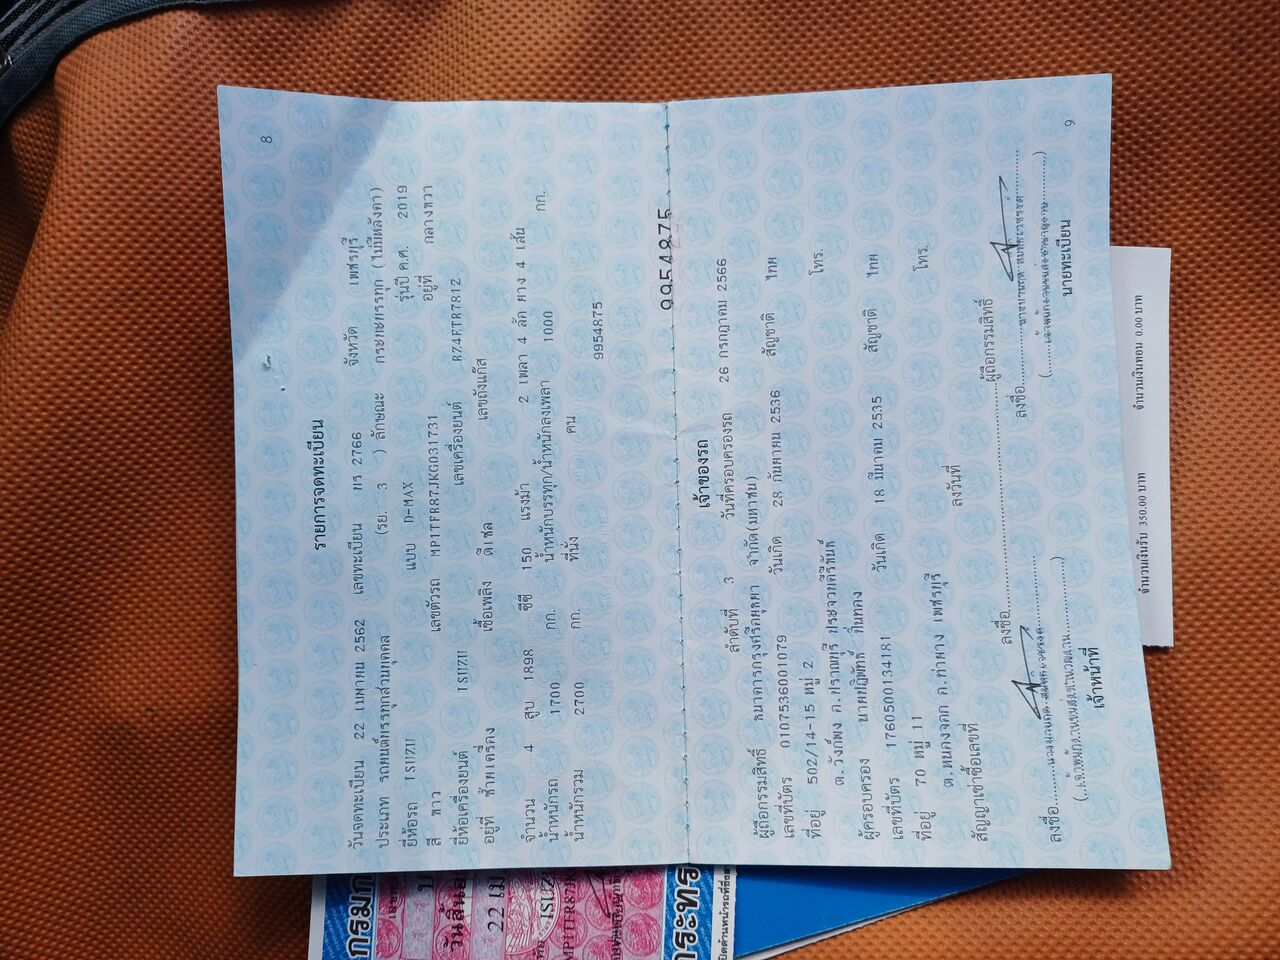 8
รายการจดทะเบียน
วันจดทะเบียน 22 เมษายน 2562 เลขทะเบียน บร 2766 จังหวัด เพชรบุรี
ประเภท รถยนต์บรรทุกส่วนบุคคล (รย. 3 ) ลักษณะ กระบะบรรทุก (ไม่มีหลังคา)
ยี่ห้อรถ ISUZU แบบ D-MAX รุ่นปี ค.ศ. 2019
สี ขาว เลขตัวรถ MP1TFR87JKG031731 อยู่ที่ กลางขวา
ยี่ห้อเครื่องยนต์ ISUZU เลขเครื่องยนต์ RZ4ETR7812
อยู่ที่ ซ้ายเครื่อง เชื้อเพลิง ดีเซล เลขถังแก๊ส
จำนวน 4 สูบ 1898 ซีซี 150 แรงม้า 2 เพลา 4 ล้อ ยาง 4 เส้น
น้ำหนักรถ 1700 กก. น้ำหนักบรรทุก/น้ำหนักลงเพลา 1000 กก.
น้ำหนักรวม 2700 กก. ที่นั่ง คน
9954875
9954875
เจ้าของรถ
ลำดับที่ 3 วันที่ครอบครองรถ 26 กรกฎาคม 2566
ผู้ถือกรรมสิทธิ์ ธนาคารกรุงศรีอยุธยา จำกัด(มหาชน)
เลขที่บัตร 0107536001079 วันเกิด 28 กันยายน 2536 สัญชาติ ไทย
ที่อยู่ 502/14-15 หมู่ 2 โทร.
ต.วังก์พง อ.ปราณบุรี ประจวบคีรีขันธ์
ผู้ครอบครอง นายปฏิพัทธ์
เลขที่บัตร 1760500134181 วันเกิด 18 มีนาคม 2535 สัญชาติ ไทย
ที่อยู่ 70 หมู่ 11 โทร.
อ.ท่ายาง เพชรบุรี
สัญญาเช่าซื้อเลขที่ ลงวันที่
ลงชื่อ ผู้ถือกรรมสิทธิ์
ลงชื่อ ลงชื่อ
เจ้าหน้าที่ นายทะเบียน
9
จำนวนเงินรับ 350.00 บาท จำนวนเงินทอน 0.00 บาท
กรมก
วันสิ้นอ
22 เม.
ISUZU
MP1TFR87JK
กระทร